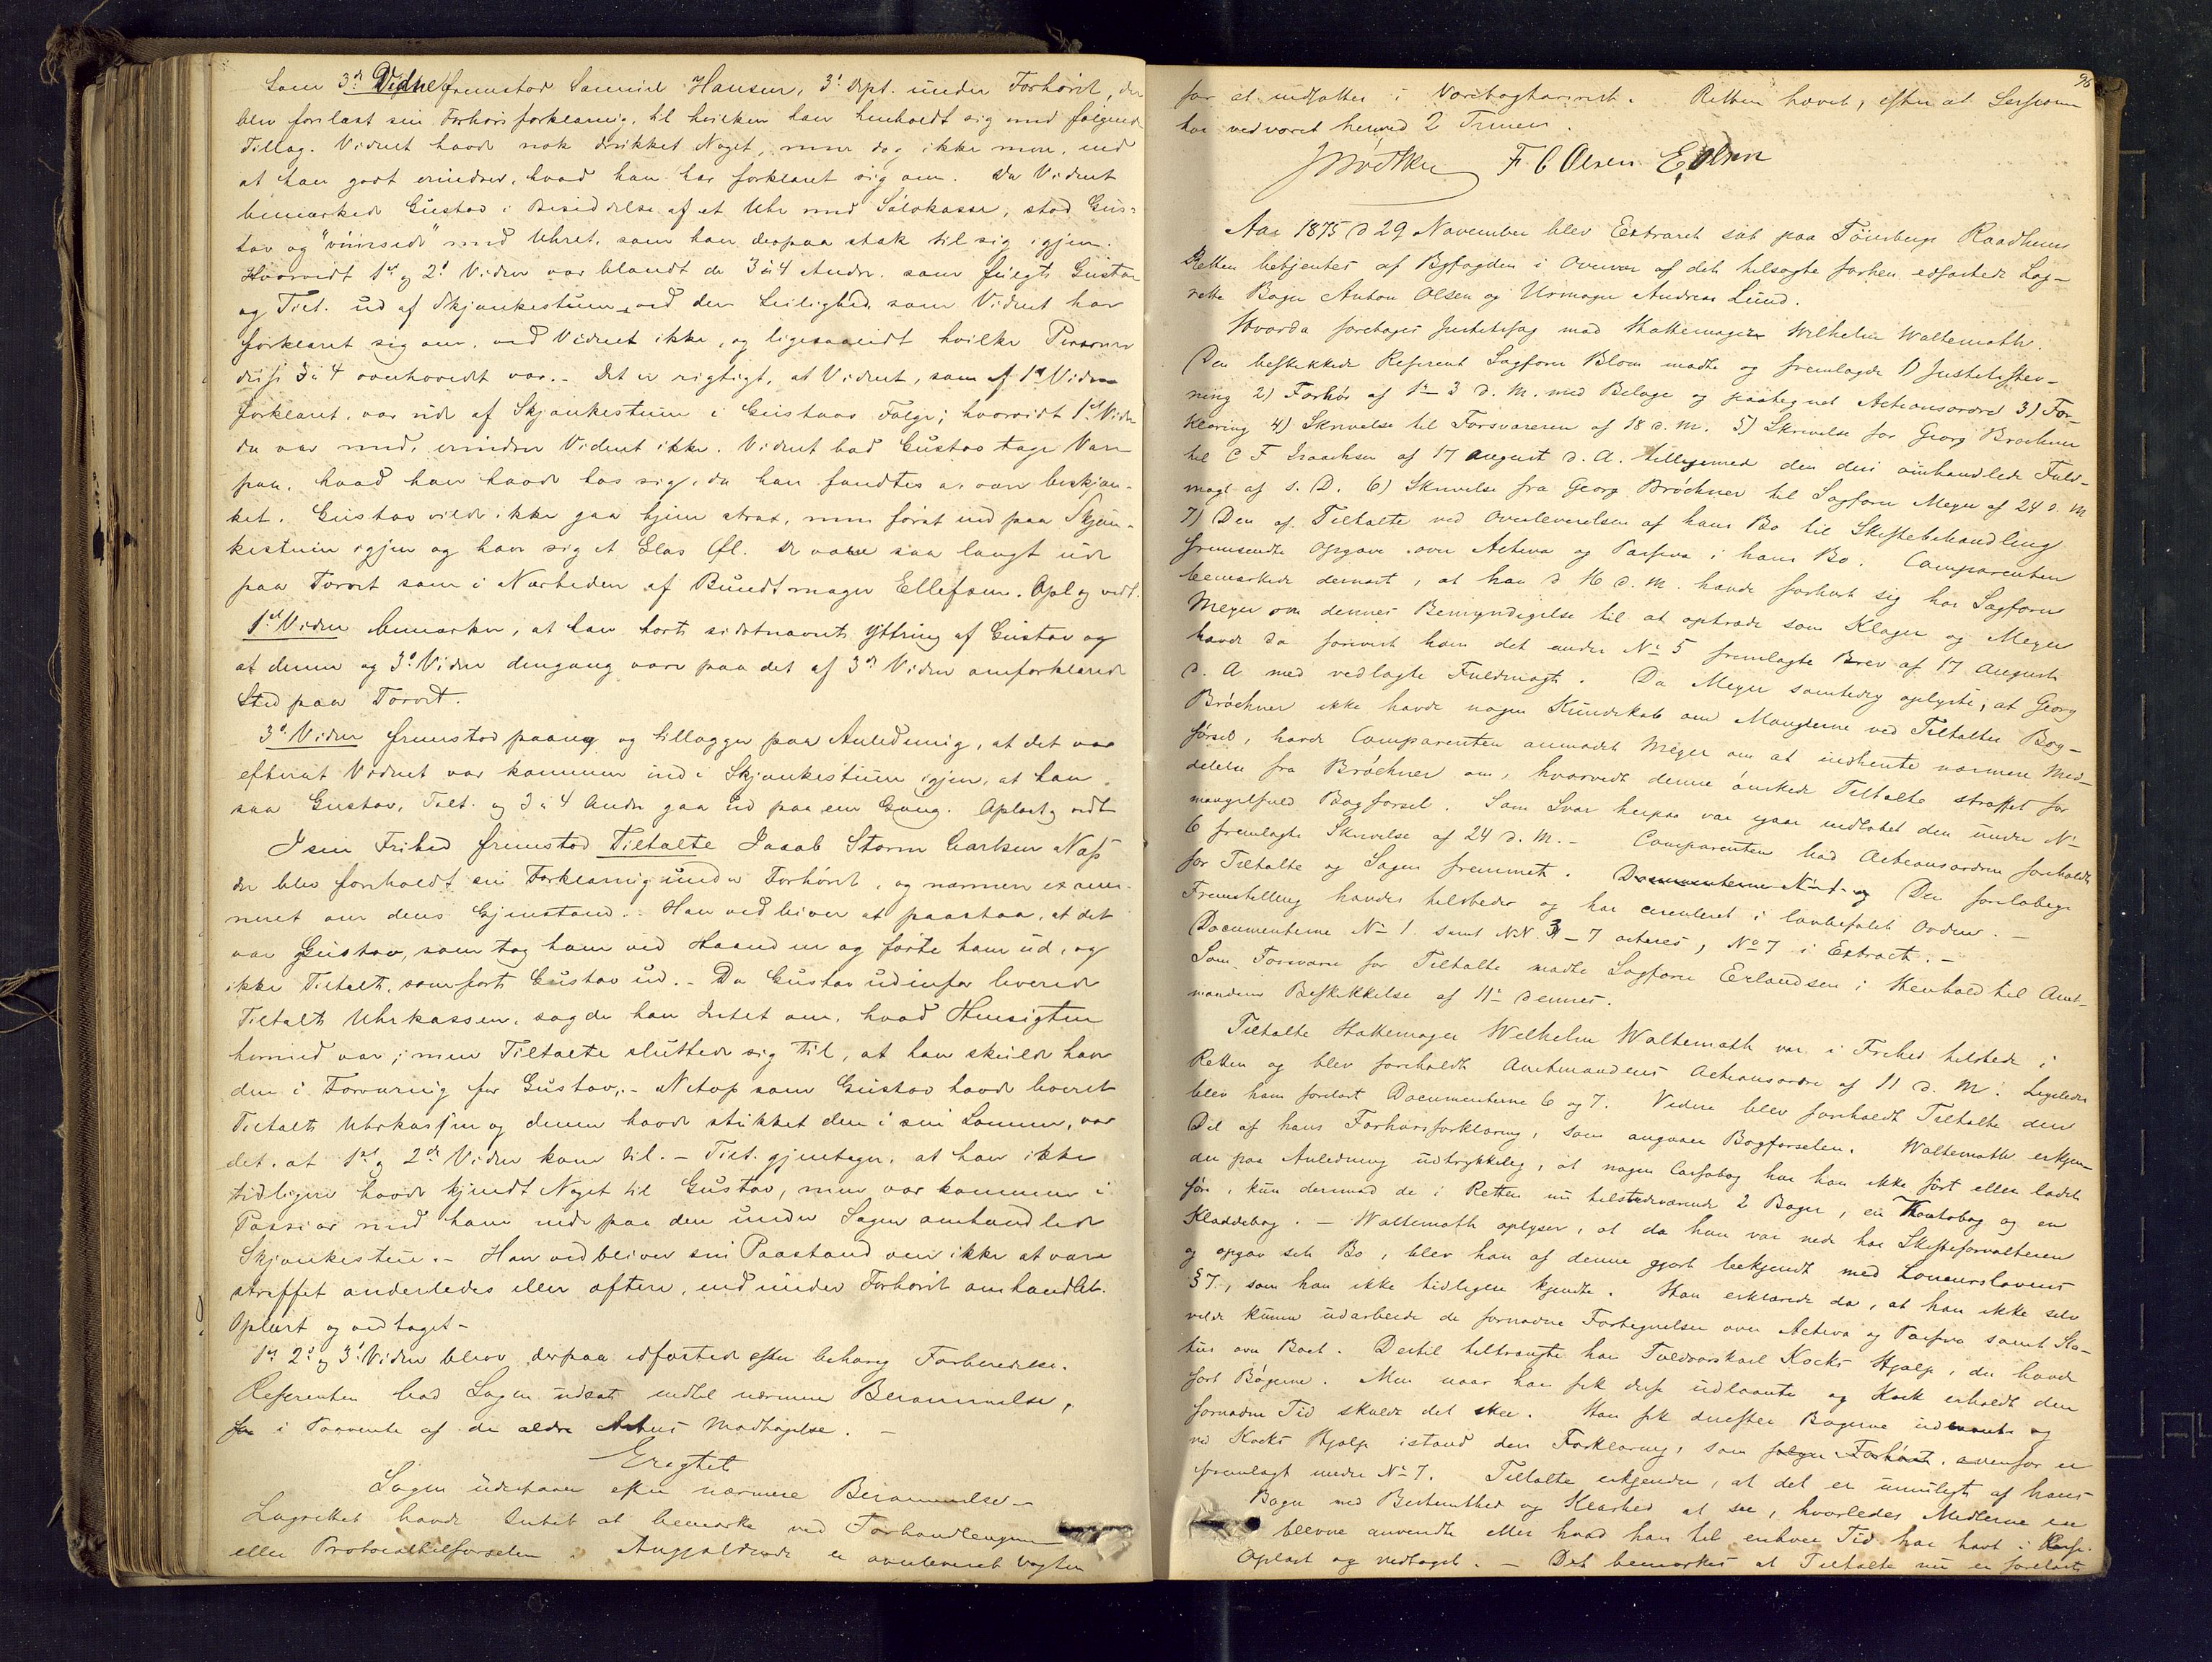 Som 3d Vidne fremstod Samuel Hansen, 3d Dpt. under Forhøret, der
blev forelæst sin Forhørsforklaring, til hvilken han henholdt sig med følgende
Tillæg. Vidnet havde nok drukket Noget, men dog ikke mere, end
at han godt erindrer, hvad han har forklaret sig om. Da Vidnet
bemærkede Gustav i Besiddelse af et Uhr med Sølvkasse, stod Gus-
tav og "viinsede" med Uhret, som han derpaa stak til sig igjen.
Hvorvidt 1st og 2d Vidne var blandt de 3 à 4 Andre, som fulgte Gustav
og Tilt. ud af Skjænkestuen ved den Leilighed, som Vidnet har
forklaret sig om, ved Vidnet ikke, og ligesaavidt hvilke Personer
disse 3 à 4 overhovedt var. - Det er rigtigt, at Vidnet, som af 1st Vidne
forklaret, var ude af Skjænkestuen i Gustavs Følge; hvorvidt 1st Vidne
da var med, erindrer Vidnet ikke. Vidnet bad Gustav tage Vare
paa, hvad han havde hos sig, da han syntes at være beskjæn-
ket. Gustav vilde ikke gaa hjem strax, men først ind paa Skjæn-
kestuen igjen og have sig et Glas Øl. De vare saa langt ude
paa Torvet som i Nærheden af Bundtmager Ellefsen. Opl og vedt.
1st Vidne bemærker, at han hørte sidstnævnte Yttring af Gustav og
at denne og 3d Vidne dengang vare paa det af 3d Vidne omforklarede
Sted paa Torvet.
3d Vidne fremstod paany og tillægger paa Anledning, at det var
efterat Vidnet var kommen ind i Skjænkestuen igjen, at han
saa Gustav, Tilt. og 3 à 4 Andre gaa ud paa en Gang. Oplæst og vedt
I sin Frihed fremstod Tiltalte Jacob Storm Carlsen Næss
der blev foreholdt sin Forklaring under Forhøret, og nærmere exami-
neret om dens Gjenstand. Han vedbliver at paastaa, at det
var Gustav, som tog ham ved Haanden og førte ham ud, og
ikke Tiltalte, som førte Gustav ud. - Da Gustav udenfor leverede
Tiltalte Uhrkassen, sagde han Intet om, hvad Hensigten
hermed var; men Tiltalte sluttede sig til, at han skulde have
den i Forvaring for Gustav. - Netop som Gustav havde leveret
Tiltalte Uhrkassen og denne havde stikket den i sin Lomme, var
det, at 1st og 2d Vidne kom til. - Tilt. gjentager, at han ikke
tidligere havde kjendt Noget til Gustav, men var kommen i
Passiar med ham inde paa den under Sagen omhandlede
Skjænkestue. - Han vedbliver sin Paastand om ikke at være
straffet anderledes eller oftere, end under Forhøret omhandlet.
Oplæst og vedtaget -
1st 2d og 3d Vidne bleve derpaa edfæstede efter behørig Forberedelse.
Referenten bad Sagen udsat indtil nærmere Berammelse,
i Paavente af de ældre Acters Modtagelse. -
Eragtet
Sagen udestaaer efter nærmere Berammelse -
Lagrettet havde Intet at bemærke ved Forhandlingerne
eller Protocoltilførselen. Angjældende er overleveret Vagten
96
for at indsættes i Varetægtsarrest. Retten hævet, efter at Sessionen
har vedvaret henved 2 Timer.
F. C Olsen E. Olsen
Aar 1875 d 29 November blev Extraret sat paa Tönsbergs Raadhuus
Retten betjentes af Byfogden i Overvær af det tilsagte forhen edfæstede Lag-
rette Bager Anton Olsen og Urmager Andreas Lund.
Hvorda foretoges Justitssag mod Hattemager Wilhelm Waltemath.
Den beskikkede Referent Sagfører Blom mødte og fremlagde 1) Justitsstev-
ning 2) Forhør af 1 - 3 d. M. med Bilage og paategnet Actionsordre 3) For-
klaring 4) Skrivelse til Forsvareren af 18 d. M. 5) Skrivelse fra Georg Brøchner
til C F Isaachsen af 17 August d. A. tilligemed den deri omhandlede Fuld-
magt af s. D. 6) Skrivelse fra Georg Brøchner til Sagfører Meyer af 24 d. M
7) Den af Tiltalte ved Overleverelsen af hans Bo til Skiftebehandling
fremsendte Opgave over Activa og Passiva i hans Bo. Comparenten
bemærkede dernæst, at han d 16 d. M. havde forhørt sig hos Sagfører
Meyer om dennes Bemyndigelse til at optræde som Klager og Meyer
havde da forevist ham det under No 5 fremlagte Brev af 17 August
d. A. med vedlagte Fuldmagt. Da Meyer samtidig oplyste, at Georg
Brøchner ikke havde nogen Kundskab om Manglerne ved Tiltaltes Bog-
førsel, havde Comparenten anmodet Meyer om at indhente nærmere Med-
delelse fra Brøchner om, hvorvidt denne ønskede Tiltalte straffet for
mangelfuld Bogførsel. Som Svar herpaa var igaar indløbet den under No
6 fremlagte Skrivelse af 24 d. M. - Comparenten bad Actionsordren foreholdt
for Tiltalte og Sagen fremmet. Den foreløbige
Fremstilling havdes tilstede og har circuleret i lovbefalet Orden. -
Documenterne No 1 samt NN. 3 - 7 acteres, No 7 i Extract. -
Som Forsvarer for Tiltalte mødte Sagfører Erlandsen i Henhold til Amt-
mandens Beskikkelse af 11 dennes.
Tiltalte Hattemager Wilhelm Waltemath var i Frihed tilstede i
Retten og blev foreholdt Amtmandens Actionsordre af 11 d. M. Ligeledes
blev ham forelæst Documenterne 6 og 7. Videre blev foreholdt Tiltalte den
Del af hans Forhørsforklaring, som angaaer Bogførselen. Waltemath erkjen-
der paa Anledning udtrykkelig, at nogen Cassabog har han ikke ført eller ladet
føre, kun dermed de i Retten nu tilstedeværende 2 Bøger, en Contobog og en
Kladdebog. - Waltemath oplyser, at da han var nede hos Skifteforvalteren
og opgav sit Bo, blev han af denne gjort bekjendt med Concurslovens
§ 7, som han ikke tidligere kjendte. Han erklærede da, at han ikke selv
vilde kunne udarbeide de fornødne Fortegnelser over Activa og Passiva samt Sta-
tus over Boet. Dertil tiltrængte han Toldoverskarl Kocks Hjælp, der havde
ført Bøgerne. Men naar han fik disse udlaante og Kock erholdt den
fornødne Tid skulde det skee. Han fik derefter Bøgerne udlaante og
ved Kocks Hjælp istand den Forklaring, som ovenfor er
fremlagt under No 7. Tiltalte erkjender, at det er umuligt af hans
Bøger med Bestemthed og Klarhed at see, hvorledes Midlerne ere
blevne anvendte eller hvad han til enhver Tid har havt i Kasse.
Oplæst og vedtaget. - Det bemærkes at Tiltalte nu er forelæst